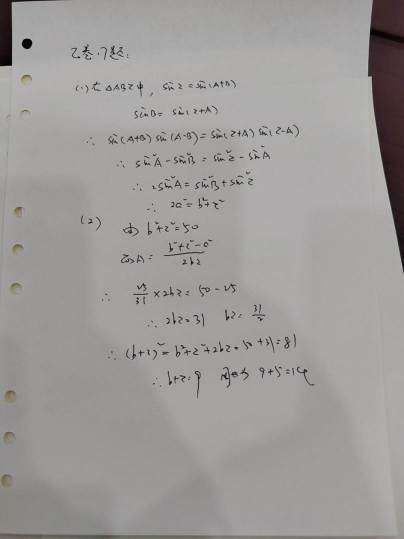 乙卷.17题:
(1) 在△ABC中, sinC=sin(A+B)
sinB= sin(C+A)
∴ sin(A+B) sin(A-B)=sin(C+A) sin(C-A)
∴ sin²A-sin²B = sin²C-sin²A
∴ 2sin²A=sin²B+sin²C
∴ 2a²=b²+c²
(2) 由 b²+c²=50
cosA= (b²+c²-a²)/(2bc)
∴ 25/31 ×2bc = 50-25
∴ 2bc=31 bc= 31/2
∴ (b+c)²=b²+c²+2bc=50+31=81
∴ b+c=9 周长为 9+5=14